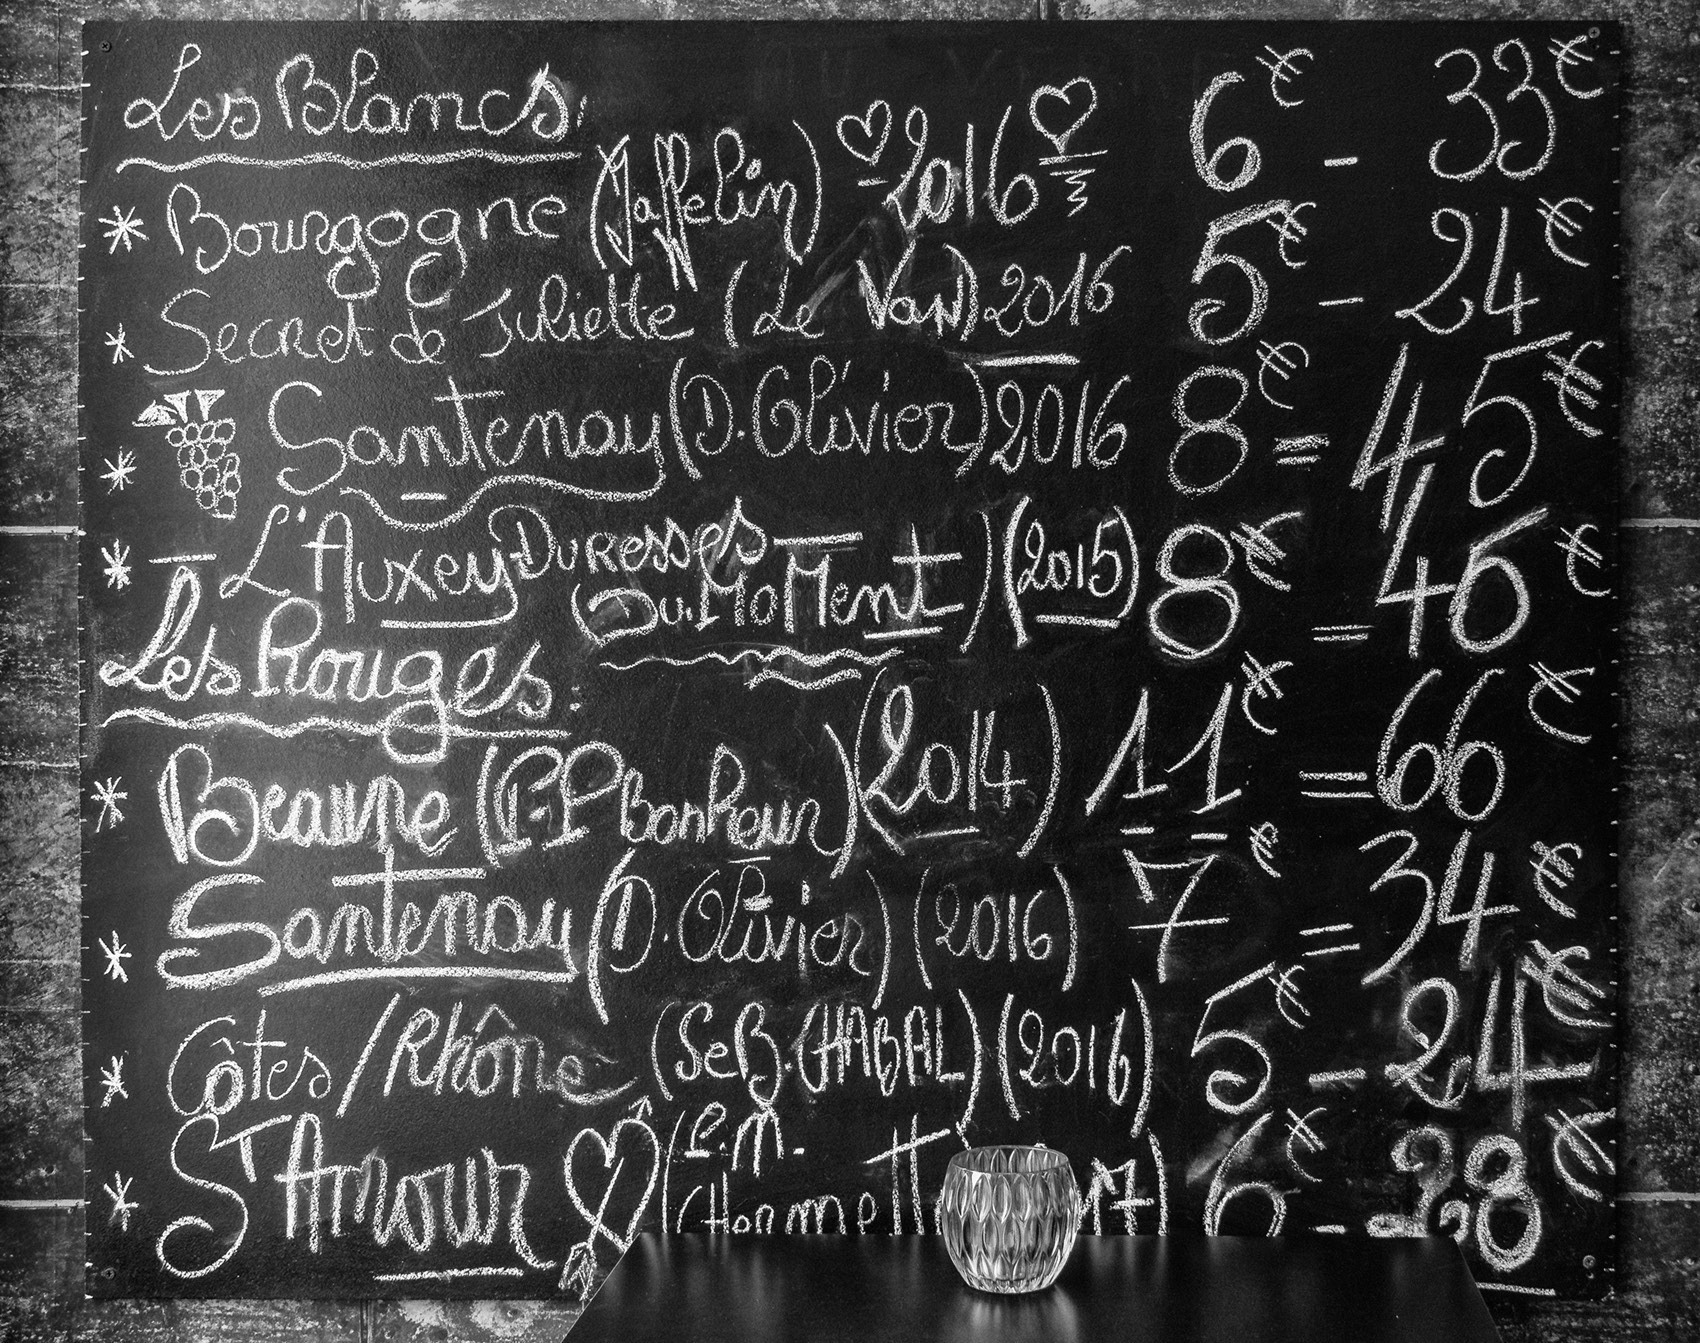 Les Blancs:
* Bourgogne (Jaffelin) - 2016 6€ - 33€
* Secret de Juliette (Le Van) 2016 5€ - 24€
* Santenay (D. Olivier) 2016 8€ = 45€
* - L'Auxey Duresses - (Du. MoMent) (2015) 8€ = 46€
Les Rouges:
* Beaune (P.P bonheur) (2014) 11€ = 66€
* Santenay (D. Olivier) (2016) 7€ = 34€
* Côtes/Rhône (SeB. CHABAL) (2016) 5€ - 24€
* St Amour (P.M. 17) 6€ - 28€